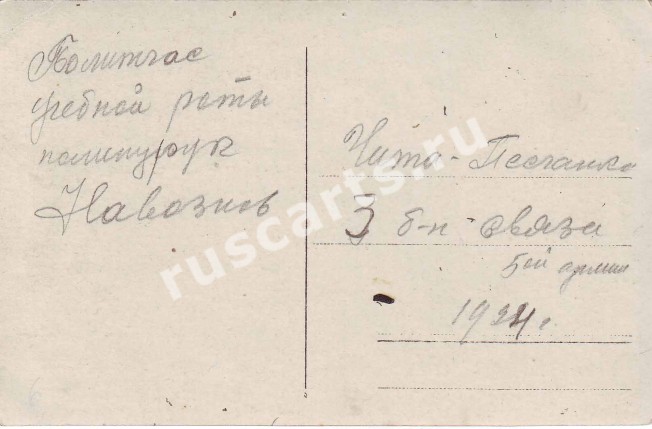 Политчас
учебной роты
политрук
Навознов
Чита-Песчанка
3 б-н связи
5ой армии
1924 г.
ruscarts.ru